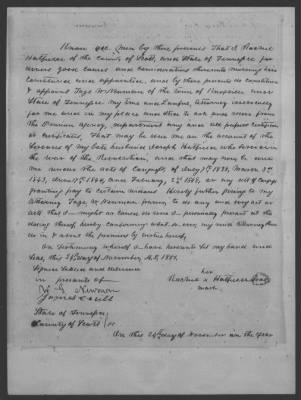 Know all Men by these presents That I Rachel
Hatfield of the County of Scott, and State of Tennessee for
divers good causes and considerations thereunto moving have
constituted and appointed, and by these presents do constitute
& appoint Taze W Newman of the town of
State of Tennessee my true and Lawful Attorney
for me and in my place and Stead to ask and receive from
The Pension Agency, department any and all
or certificates, That may be due me on the account of the
Services of my late husband Joseph Hatfield, who served in
the war of the Revolution, and that may now be due
me under the acts of Congress of July 7th 1838, March 3rd
1843, 1844 and February 2nd 1848, or any act of Congress
granting pay to certain widows hereby further giving to my
Attorney Taze W Newman power to do any and every act or
acts that I might or could do were I personally present at the
doing thereof, hereby confirming what so ever my said Attorney
in & about the premises by virtue hereof.
In Testimony whereof I have hereunto Set my hand and
Seal, this 26th day of November A.D. 1851.
Signed Sealed and delivered
in presents of
her
Rachel x Hatfield
mark
Newman
James
State of Tennessee
County of Scott SS
On this 26th day of November in the year